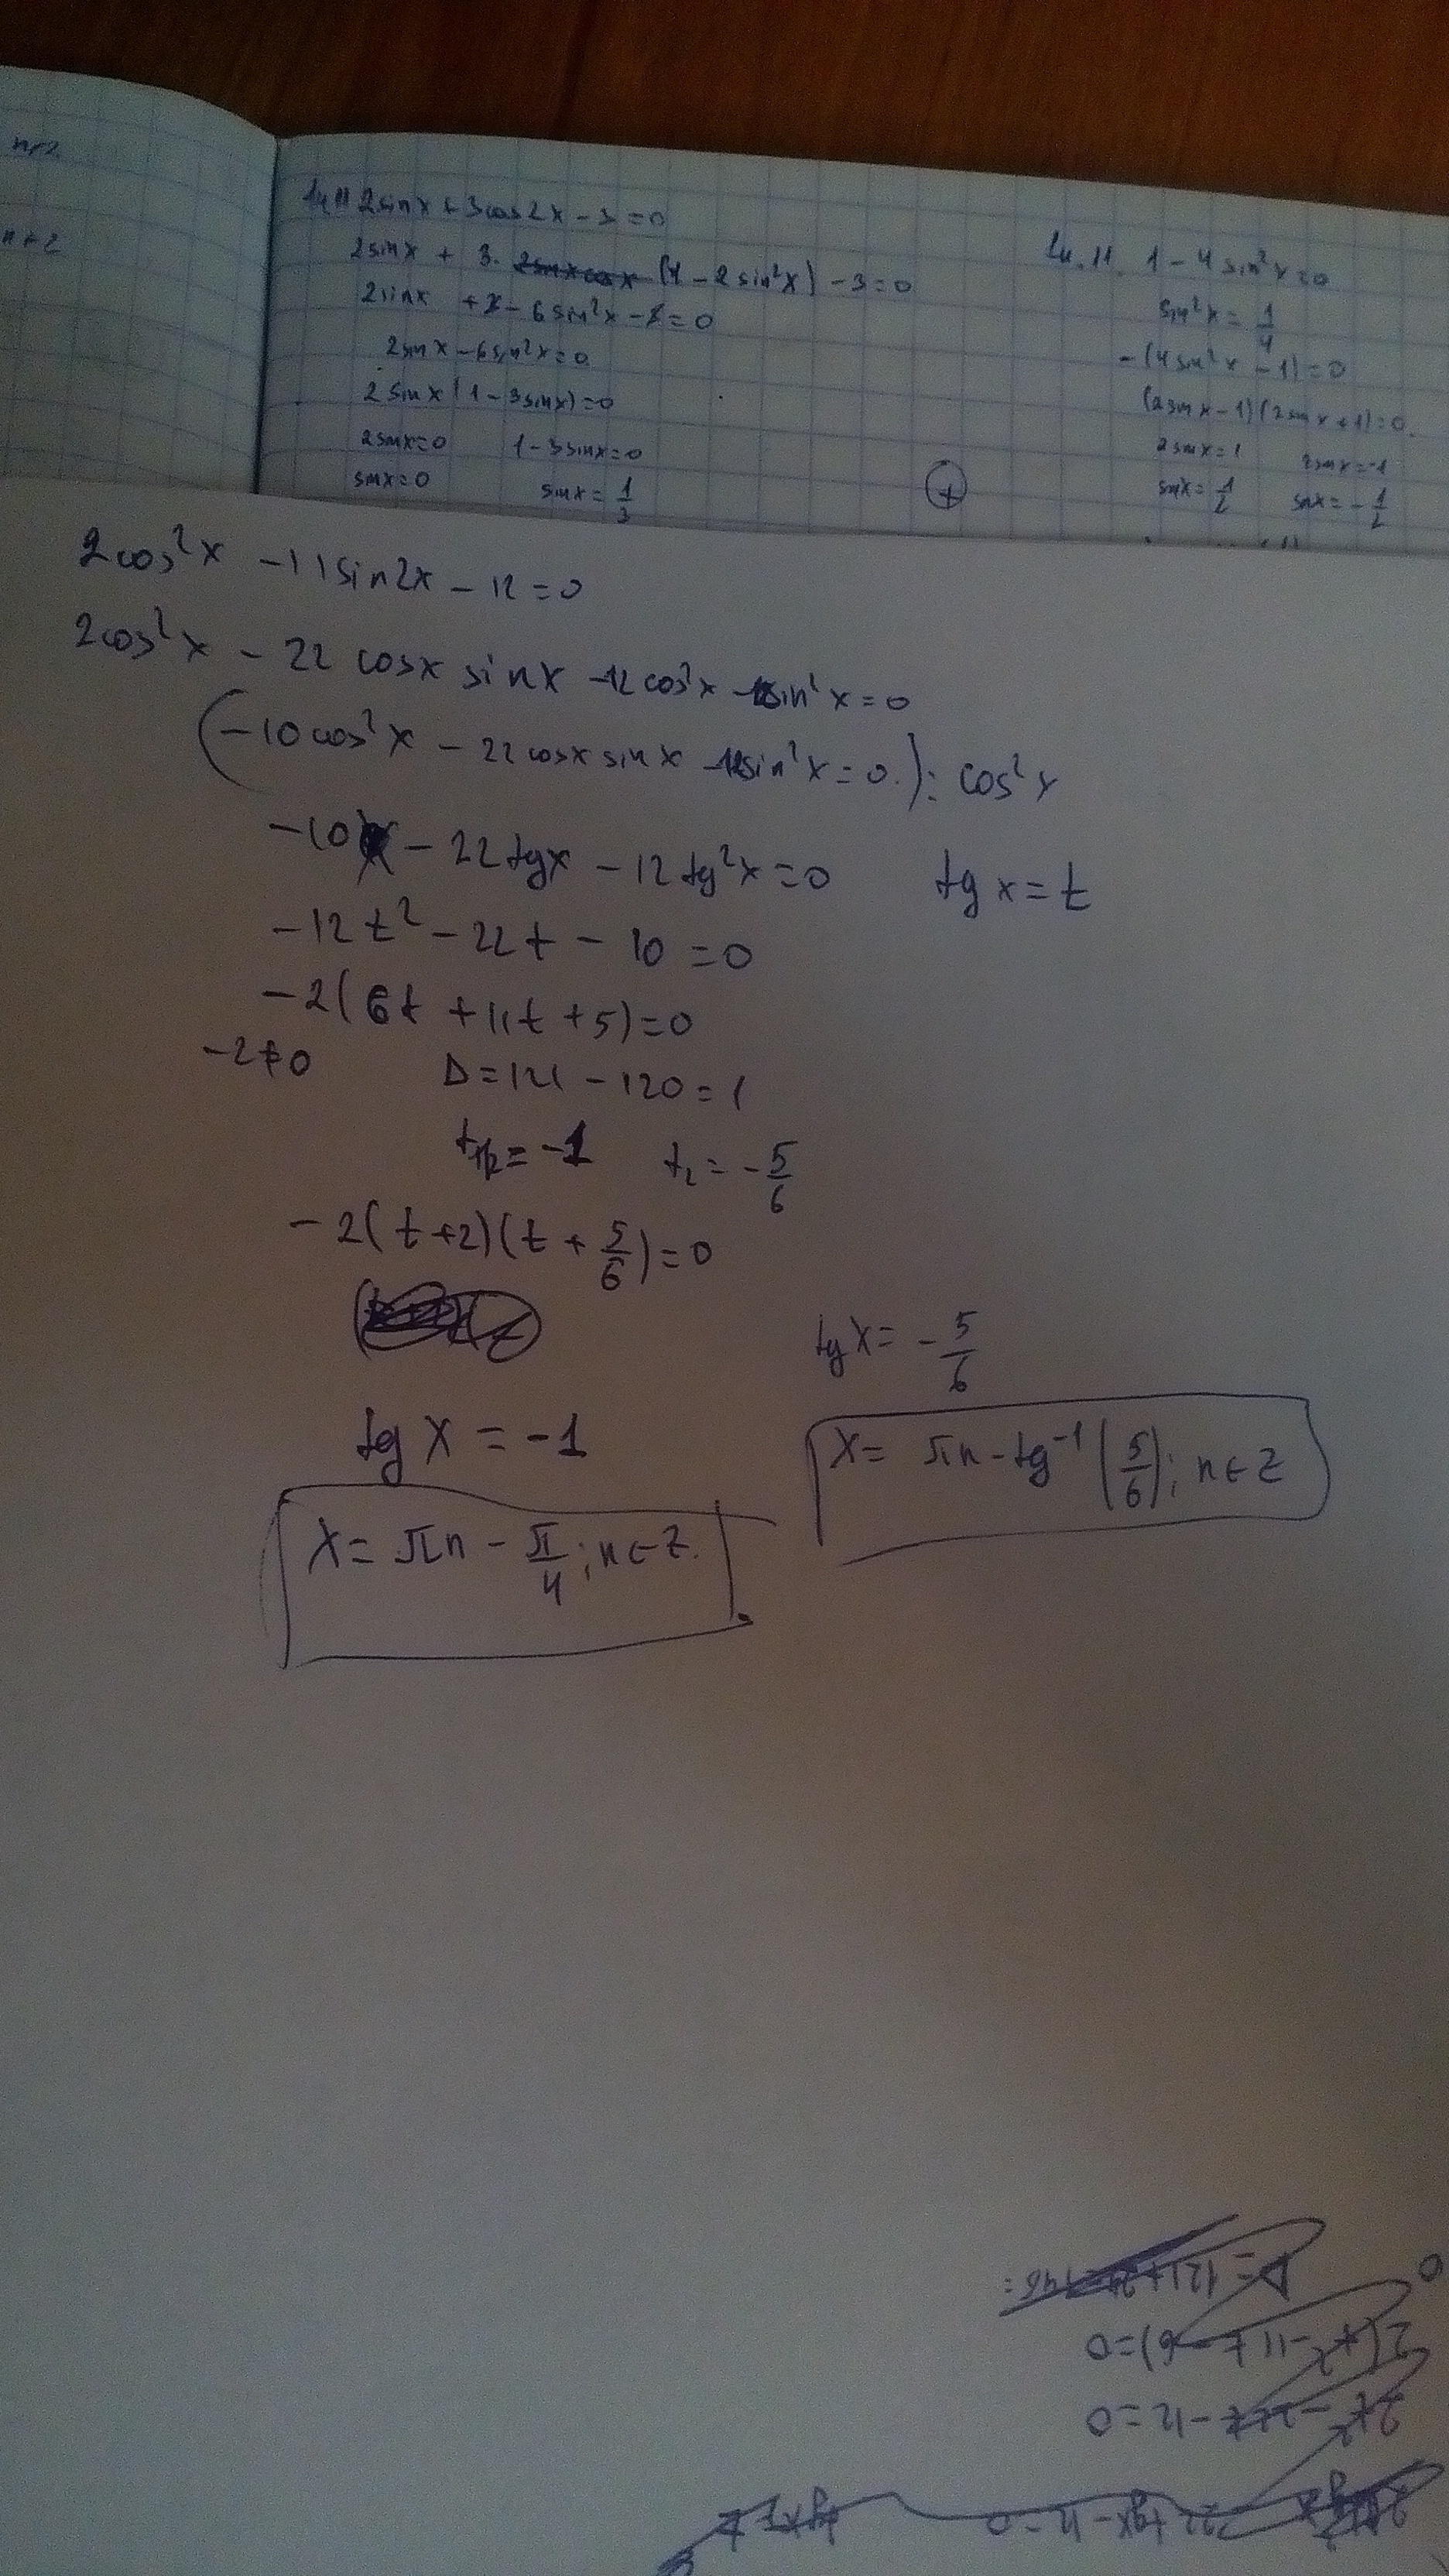 n+2
n+2
2sinx + 3cos2x - 3 = 0
2sinx + 3 · 2sinxcosx (1 - 2sin²x) - 3 = 0
2sinx + 3 - 6sin²x - 3 = 0
2sinx - 6sin²x = 0
2sinx(1 - 3sinx) = 0
2sinx=0 1 - 3sinx=0
sinx=0 sinx = 1/3
+
1 - 4sin²x = 0
sin²x = 1/4
-(4sin²x - 1) = 0
(2sinx - 1)(2sinx + 1) = 0.
2sinx = 1 2sinx = -1
sinx = 1/2 sinx = - 1/2
2cos²x - 11sin2x - 12 = 0
2cos²x - 22 cosx sinx - 12cos²x - 12sin²x = 0
(-10cos²x - 22cosx sinx - 12sin²x = 0.) : cos²x
-10 - 22tgx - 12tg²x = 0 tg x = t
-12t² - 22t - 10 = 0
-2(6t + 11t + 5) = 0
-2≠0 D = 121 - 120 = 1
t = -1 t₂ = - 5/6
-2(t+2)(t + 5/6) = 0
tg x = - 5/6
tg x = -1
x = πn - tg⁻¹(5/6); n∈Z
x = πn - π/4; n∈Z.